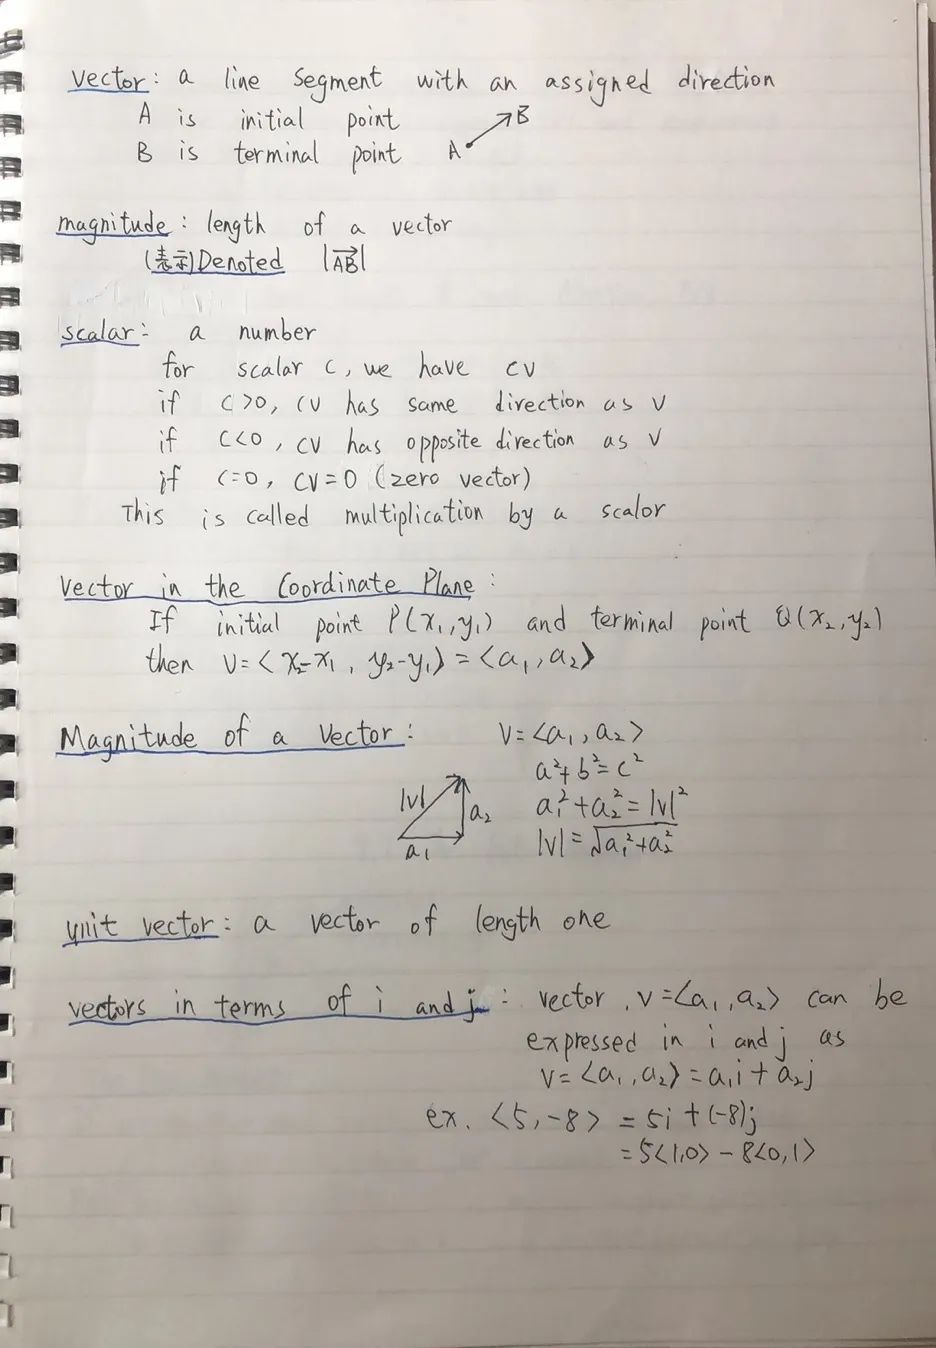 vector: a line segment with an assigned direction
A is initial point
B is terminal point A B
magnitude: length of a vector
(表示)Denoted |AB|
scalar: a number
for scalar c, we have cv
if c>0, cv has same direction as v
if c<0, cv has opposite direction as v
if c=0, cv=0 (zero vector)
This is called multiplication by a scalor
Vector in the Coordinate Plane:
If initial point P(x₁,y₁) and terminal point Q(x₂,y₂)
then v=<x₂-x₁, y₂-y₁>=<a₁,a₂>
Magnitude of a Vector: v=<a₁,a₂>
a²+b²=c²
|v| a₂ a₁²+a₂²=|v|²
a₁ |v|=√a₁²+a₂²
unit vector: a vector of length one
vectors in terms of i and j: vector, v=<a₁,a₂> can be
expressed in i and j as
v=<a₁,a₂>=a₁i+a₂j
ex. <5,-8> =5i+(-8)j
=5<1,0>-8<0,1>